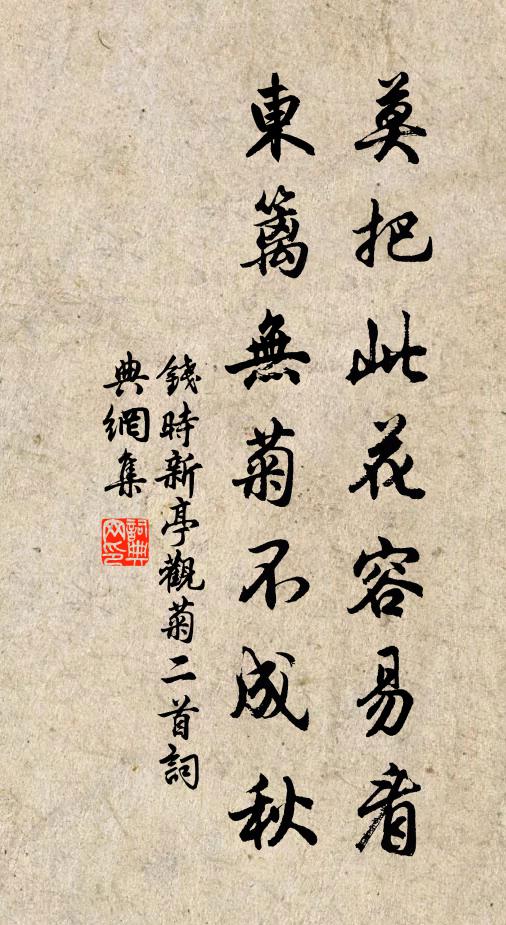 莫把此花容易看
東籬無菊不成秋
錢時新亭觀菊二首詞
典網集
詞典
网印